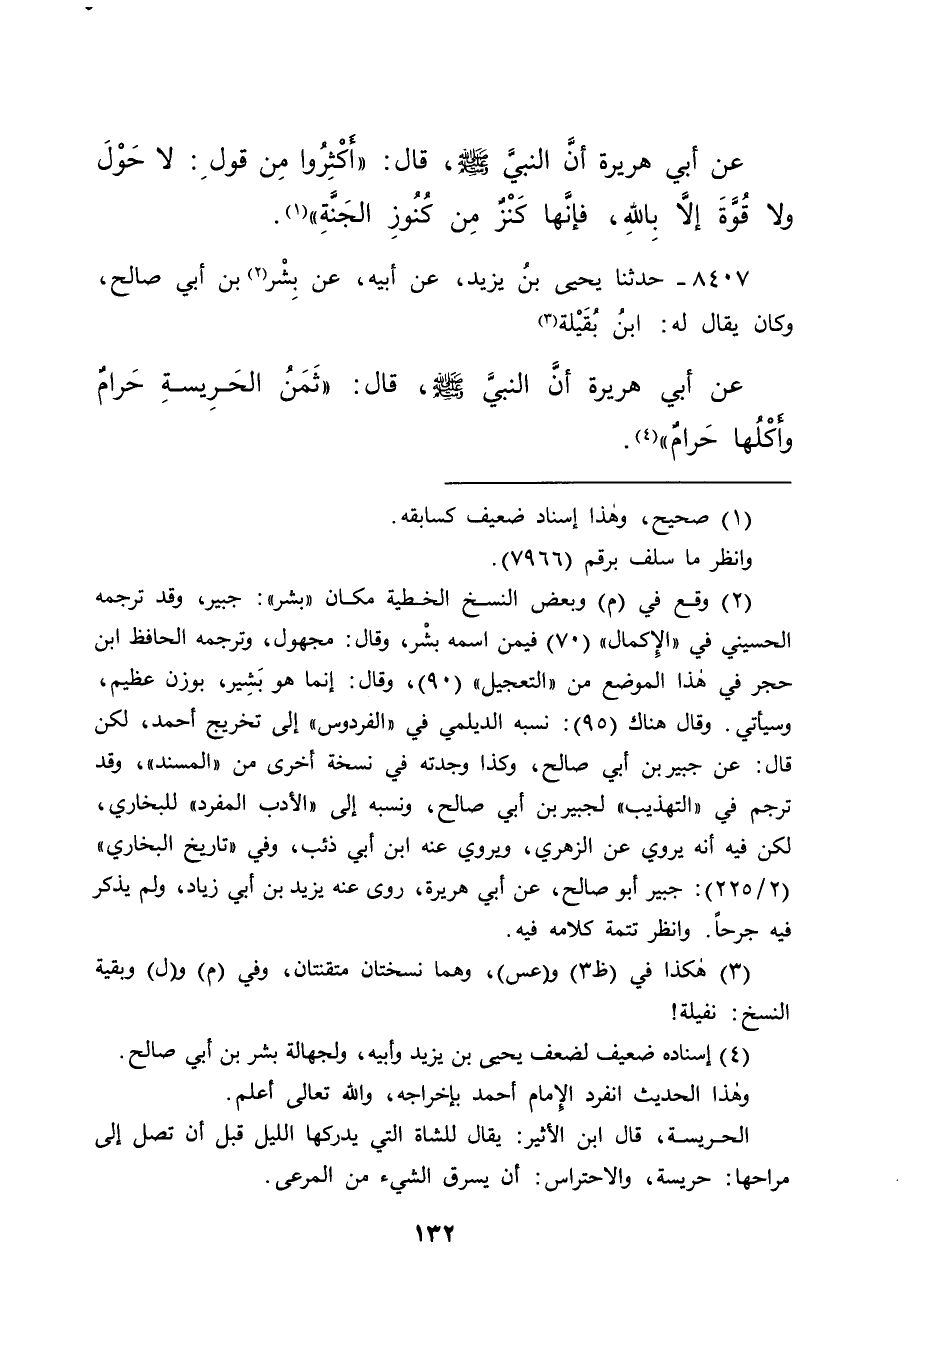 عن أبي هريرة أنَّ النبيَّ ﷺ، قال: «أَكْثِرُوا مِن قولِ: لا حَوْلَ
ولا قُوَّةَ إلَّا بِاللهِ، فإنَّها كَنْزٌ مِن كُنُوزِ الجَنَّةِ»(١).
٨٤٠٧ - حدثنا يحيى بنُ يزيد، عن أبيه، عن بِشْر(٢) بن أبي صالح،
وكان يقال له: ابنُ بُقَيْلة(٣)
عن أبي هريرة أنَّ النبيَّ ﷺ، قال: «ثَمَنُ الحَرِيسةِ حَرامٌ
وأَكْلُها حَرامٌ»(٤).
(١) صحيح، وهٰذا إسناد ضعيف كسابقه.
وانظر ما سلف برقم (٧٩٦٦).
(٢) وقع في (م) وبعض النسخ الخطية مكان «بشر»: جبير، وقد ترجمه
الحسيني في «الإكمال» (٧٠) فيمن اسمه بشْر، وقال: مجهول، وترجمه الحافظ ابن
حجر في هٰذا الموضع من «التعجيل» (٩٠)، وقال: إنما هو بَشِير، بوزن عظيم،
وسيأتي. وقال هناك (٩٥): نسبه الديلمي في «الفردوس» إلى تخريج أحمد، لكن
قال: عن جبير بن أبي صالح، وكذا وجدته في نسخة أخرى من «المسند»، وقد
ترجم في «التهذيب» لجبير بن أبي صالح، ونسبه إلى «الأدب المفرد» للبخاري،
لكن فيه أنه يروي عن الزهري، ويروي عنه ابن أبي ذئب، وفي «تاريخ البخاري»
(٢/٢٢٥): جبير أبو صالح، عن أبي هريرة، روى عنه يزيد بن أبي زياد، ولم يذكر
فيه جرحاً. وانظر تتمة كلامه فيه.
(٣) هٰكذا في (ظ٣) و(عس)، وهما نسختان متقنتان، وفي (م) و(ل) وبقية
النسخ: نفيلة!
(٤) إسناده ضعيف لضعف يحيى بن يزيد وأبيه، ولجهالة بشر بن أبي صالح.
وهٰذا الحديث انفرد الإمام أحمد بإخراجه، والله تعالى أعلم.
الحريسة، قال ابن الأثير: يقال للشاة التي يدركها الليل قبل أن تصل إلى
مراحها: حريسة، والاحتراس: أن يسرق الشيء من المرعى.
١٣٢